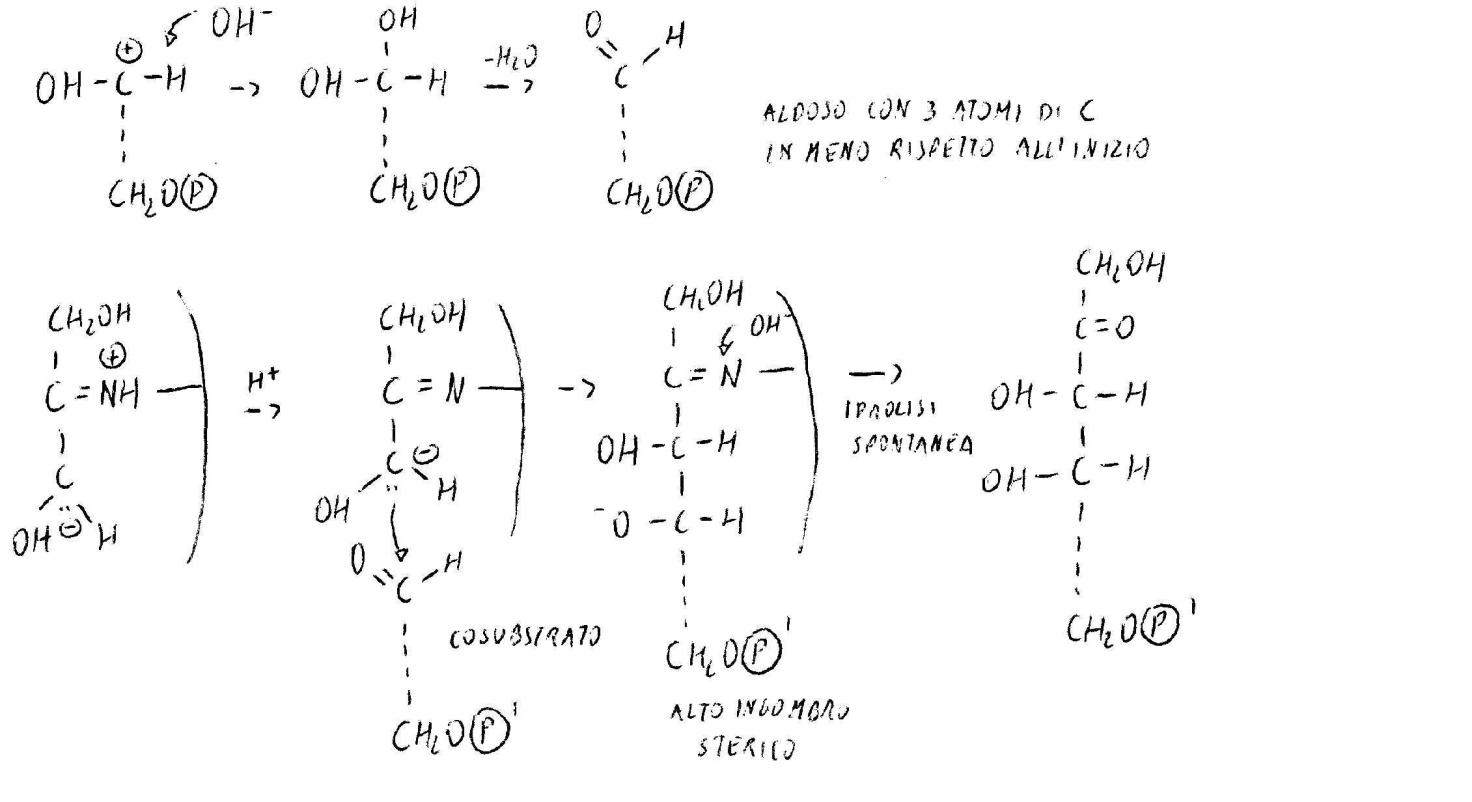 OH⁻
OH-C⊕-H
CH₂OⓅ
->
OH
OH-C-H
CH₂OⓅ
-H₂O
->
O
H
C
CH₂OⓅ
ALDOSO CON 3 ATOMI DI C
IN MENO RISPETTO ALL'INIZIO
CH₂OH
⊕
C=NH-
C
OH ⊖ H
H⁺
->
CH₂OH
C=N-
C⊖
OH H
O H
C
COSUBSTRATO
CH₂OⓅ'
->
CH₂OH
OH⁻
C=N-
OH-C-H
⁻O-C-H
CH₂OⓅ'
ALTO INGOMBRO
STERICO
->
IDROLISI
SPONTANEA
CH₂OH
C=O
OH-C-H
OH-C-H
CH₂OⓅ'